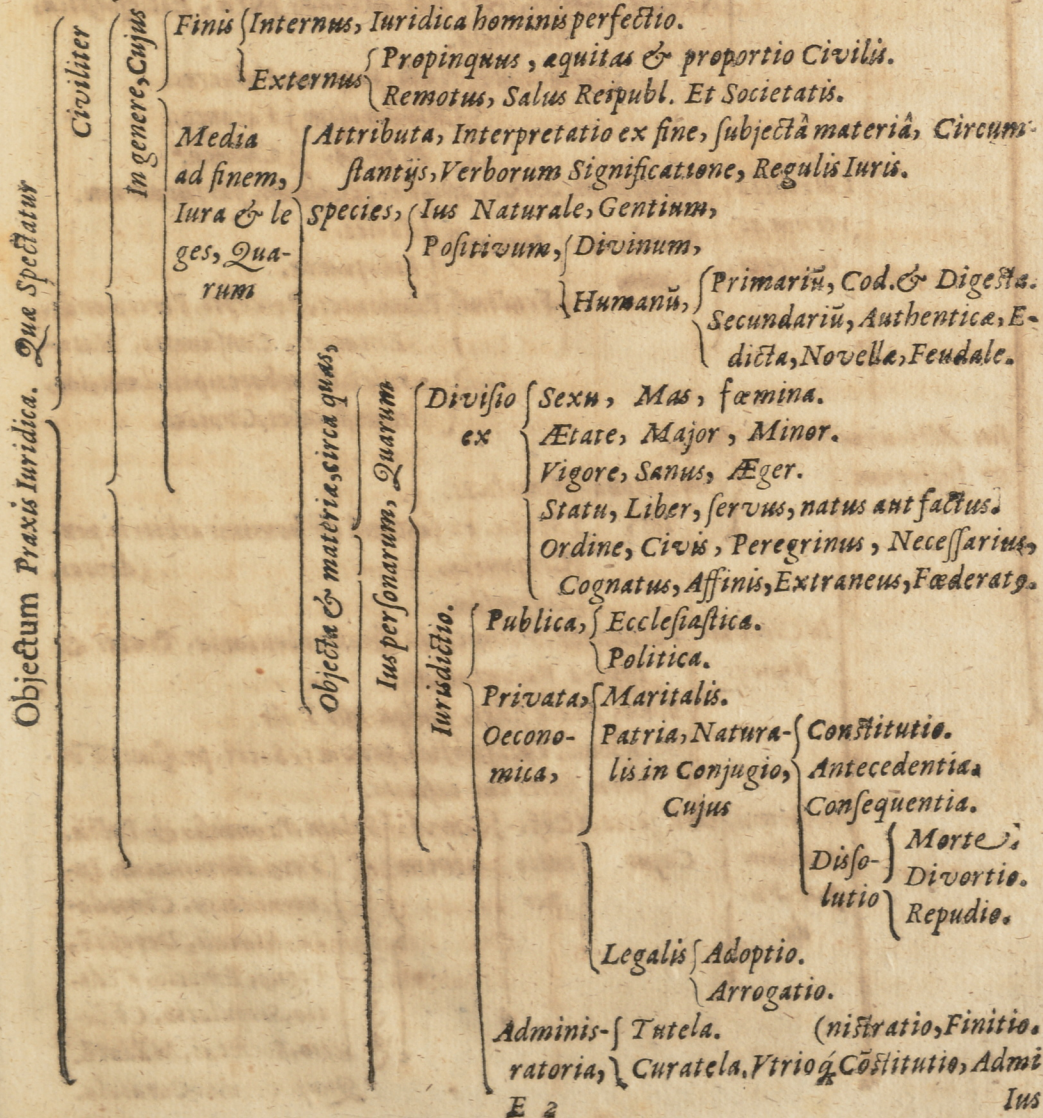 Objectum Praxis Iuridica. Quæ Spectatur
Civiliter
In genere, Cujus
Finis Internus, Iuridica hominis perfectio.
Externus Propinquus, æquitas & proportio Civilis.
Remotus, Salus Reipubl. Et Societatis.
Media ad finem, Attributa, Interpretatio ex fine, ſubjectâ materiâ, Circum-
ſtantijs, Verborum Significatione, Regulis Iuris.
Iura & le
ges, Qua-
rum
Species, Ius Naturale, Gentium,
Poſitivum, Divinum,
Humanũ, Primariũ, Cod. & Digesta.
Secundariũ, Authenticæ, E-
dicta, Novellæ, Feudale.
Objecta & materia, circa quas,
Ius perſonarum, Quarum
Diviſio
ex
Sexu, Mas, fœmina.
Ætate, Major, Minor.
Vigore, Sanus, Æger.
Statu, Liber, ſervus, natus aut factus.
Ordine, Civis, Peregrinus, Neceſſarius,
Cognatus, Affinis, Extraneus, Fœderatꝰ.
Iurisdictio.
Publica, Eccleſiaſtica.
Politica.
Privata,
Oecono-
mica,
Maritalis.
Patria, Natura-
lis in Conjugio,
Cujus
Constitutio.
Antecedentia.
Conſequentia.
Diſſo-
lutio
Morte.
Divortio.
Repudio.
Legalis Adoptio.
Arrogatio.
Adminis-
ratoria,
Tutela. (nistratio, Finitio.
Curatela. Vtrioq́; Cõstitutio, Admi
E 2
Ius